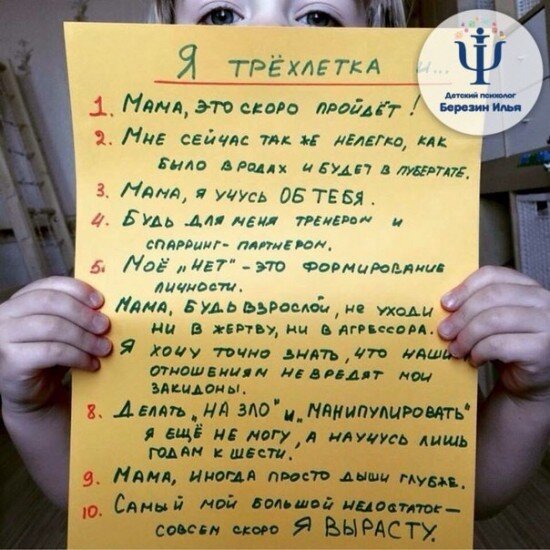 Я ТРЁХЛЕТКА И...
Детский психолог
Березин Илья
1. МАМА, ЭТО СКОРО ПРОЙДЁТ!
2. МНЕ СЕЙЧАС ТАК ЖЕ НЕЛЕГКО, КАК
БЫЛО В РОДАХ И БУДЕТ В ПУБЕРТАТЕ.
3. МАМА, Я УЧУСЬ ОБ ТЕБЯ.
4. БУДЬ ДЛЯ МЕНЯ ТРЕНЕРОМ И
СПАРРИНГ-ПАРТНЕРОМ.
5. МОЁ „НЕТ" - ЭТО ФОРМИРОВАНИЕ
ЛИЧНОСТИ.
МАМА, БУДЬ ВЗРОСЛОЙ, НЕ УХОДИ
НИ В ЖЕРТВУ, НИ В АГРЕССОРА.
Я ХОЧУ ТОЧНО ЗНАТЬ, ЧТО НАШИМ
ОТНОШЕНИЯМ НЕ ВРЕДЯТ МОИ
ЗАКИДОНЫ.
8. ДЕЛАТЬ „НА ЗЛО" И „МАНИПУЛИРОВАТЬ"
Я ЕЩЁ НЕ МОГУ, А НАУЧУСЬ ЛИШЬ
ГОДАМ К ШЕСТИ.
9. МАМА, ИНОГДА ПРОСТО ДЫШИ ГЛУБЖЕ.
10. САМЫЙ МОЙ БОЛЬШОЙ НЕДОСТАТОК—
СОВСЕМ СКОРО Я ВЫРАСТУ.